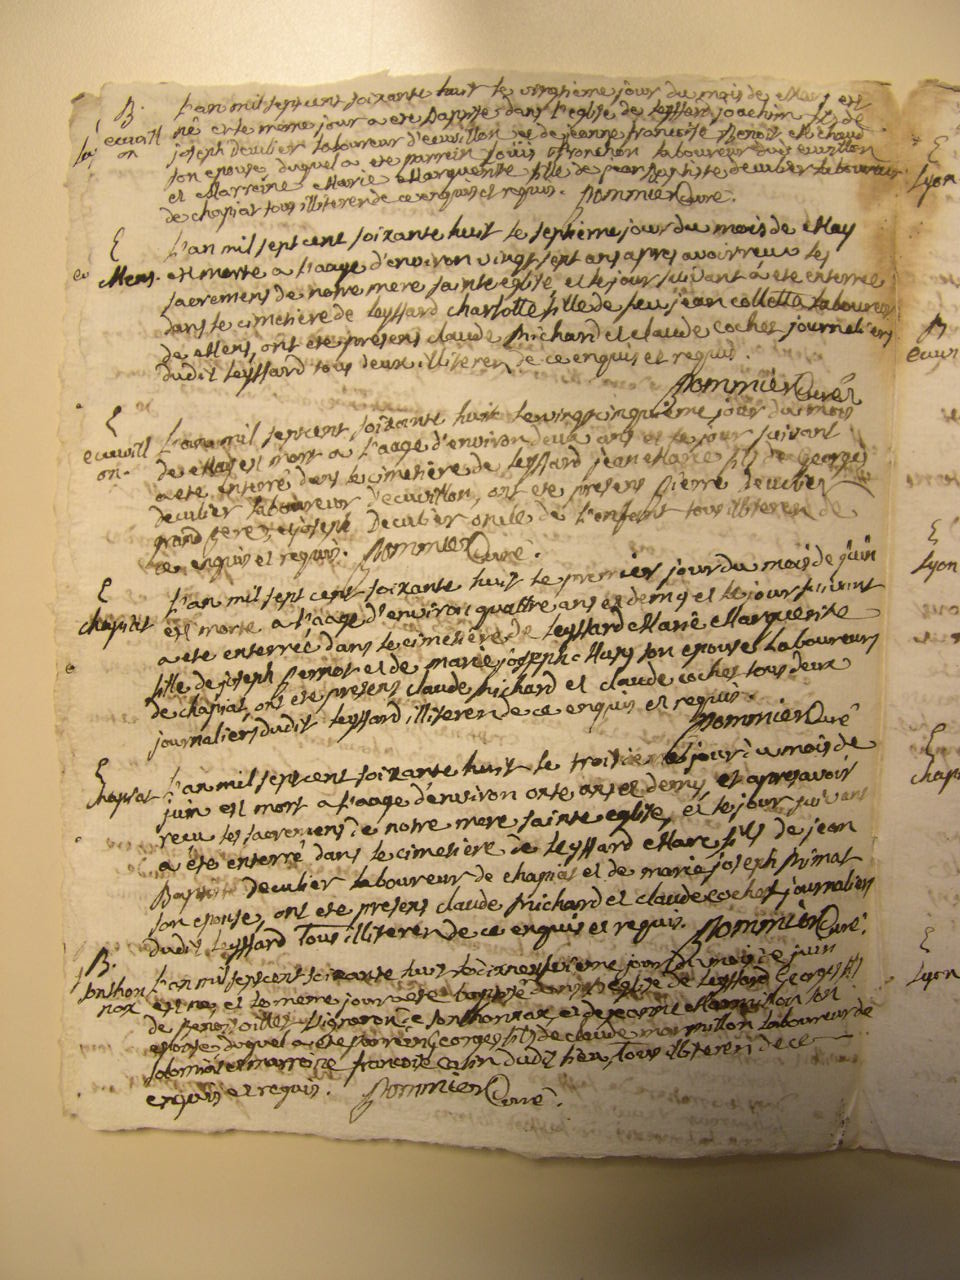 B. L'an mil sept cent soixante huit le vingtieme jour du mois de Mars est
ecuvill né et le meme jour a ete Baptisé dans l'eglise de Leyssard joachim fils de
on joseph Decubier Laboureur d'ecuvillon et de jeanne francoise Benoit Michaud
son epouse, duquel a ete parrein Louis Laboureur dud ecuvillon
et Marreine Marie Marguerite fille de jean Baptiste decubier Laboureur
de chapiat tous illiteren de ce enquis et requis. Pommier Curé.
E L'an mil sept cent soixante huit le septieme jour du mois de May
Mens. est morte a l'aage d'environ vingt sept ans apres avoir receu les
sacremens de notre mere sainte eglise et le jour suivant a ete enterree
dans le cimetiere de Leyssard charlotte fille de feu jean collette Laboureur
de Mens, ont ete presens claude Michard et claude cochet journaliers
dudit Leyssard tous deux illiteren de ce enquis et requis.
Pommier Curé
E L'an mil sept cent soixante huit le vingt cinquieme jour du mois
ecuvill de May est mort a l'aage d'environ deux ans et le jour suivant
on. a ete enterré dans le cimetière de Leyssard jean Marie fils de George
decubier laboureur d'ecuvillon, ont ete presens pierre decubier
grand pere, et joseph Decubier oncle de l'enfant tous illiteren de
ce enquis et requis. Pommier Curé.
E L'an mil sept cent soixante huit le premier jour du mois de juin
chapiat est morte a l'aage d'environ quattre ans et demy et le jour suivant
a ete enterrée dans le cimetière de Leyssard Marie Marguerite
fille de joseph pernot et de marie josepph son epouse Laboureurs
de chapiat, ont ete presens claude Michard et claude cochet tous deux
journaliers dudit Leyssard illiteren de ce enquis et requis.
Pommier Curé
E L'an mil sept cent soixante huit le troisieme jour du mois de
chapiat juin est mort a l'aage d'environ onze ans et demy, et apres avoir
receu les sacremens de notre mere sainte eglise, et le jour suivant
a été enterré dans le cimetiere de Leyssard Marc fils de jean
Baptiste Decubier Laboureur de chapiat et de marie joseph primat
son epouse, ont ete presens claude Michard et claude cochet journaliers
dudit Leyssard Tous illiteren de ce enquis et requis. Pommier Curé.
B. L'an mil sept cent soixante huit le dixneufvieme jour du mois de juin
sonthon est né, et le meme jour a ete baptisé dans l'eglise de Leyssard George fils
nax de Benoit vigneron de sonthonnax et de jeanne son
epouse duquel a ete parrein George fils de claude marmillon Laboureur de
solomiat et marreine francoise dudit lieu, Tous illiteren de ce
enquis et requis. Pommier Curé.
E
Lyon
B
ecuv
E
Lyon
E
chap
E
Lyon